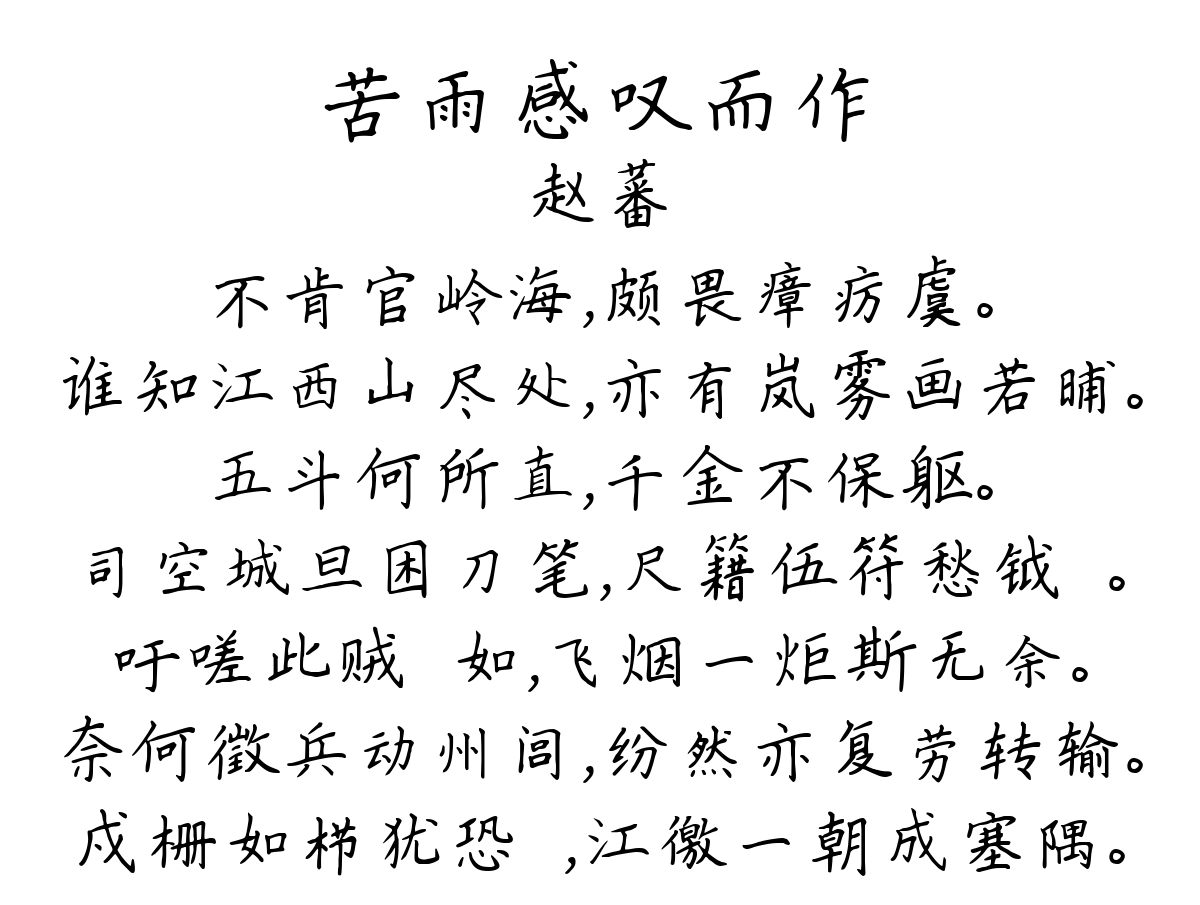 苦雨感叹而作
赵蕃
不肯官岭海,颇畏瘴疠虞。
谁知江西山尽处,亦有岚雾画若晡。
五斗何所直,千金不保躯。
司空城旦困刀笔,尺籍伍符愁钺 。
吁嗟此贼 如,飞烟一炬斯无余。
奈何徵兵动州闾,纷然亦复劳转输。
戍栅如栉犹恐 ,江徼一朝成塞隅。